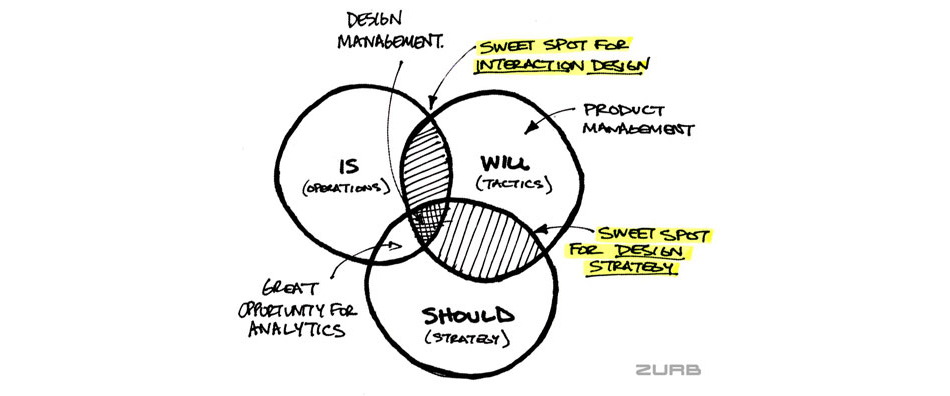 DESIGN
MANAGEMENT.
SWEET SPOT FOR
INTERACTION DESIGN
PRODUCT
MANAGEMENT
IS
(OPERATIONS)
WILL
(TACTICS)
SWEET SPOT
FOR DESIGN
STRATEGY
GREAT
OPPORTUNITY FOR
ANALYTICS
SHOULD
(STRATEGY)
ZURB